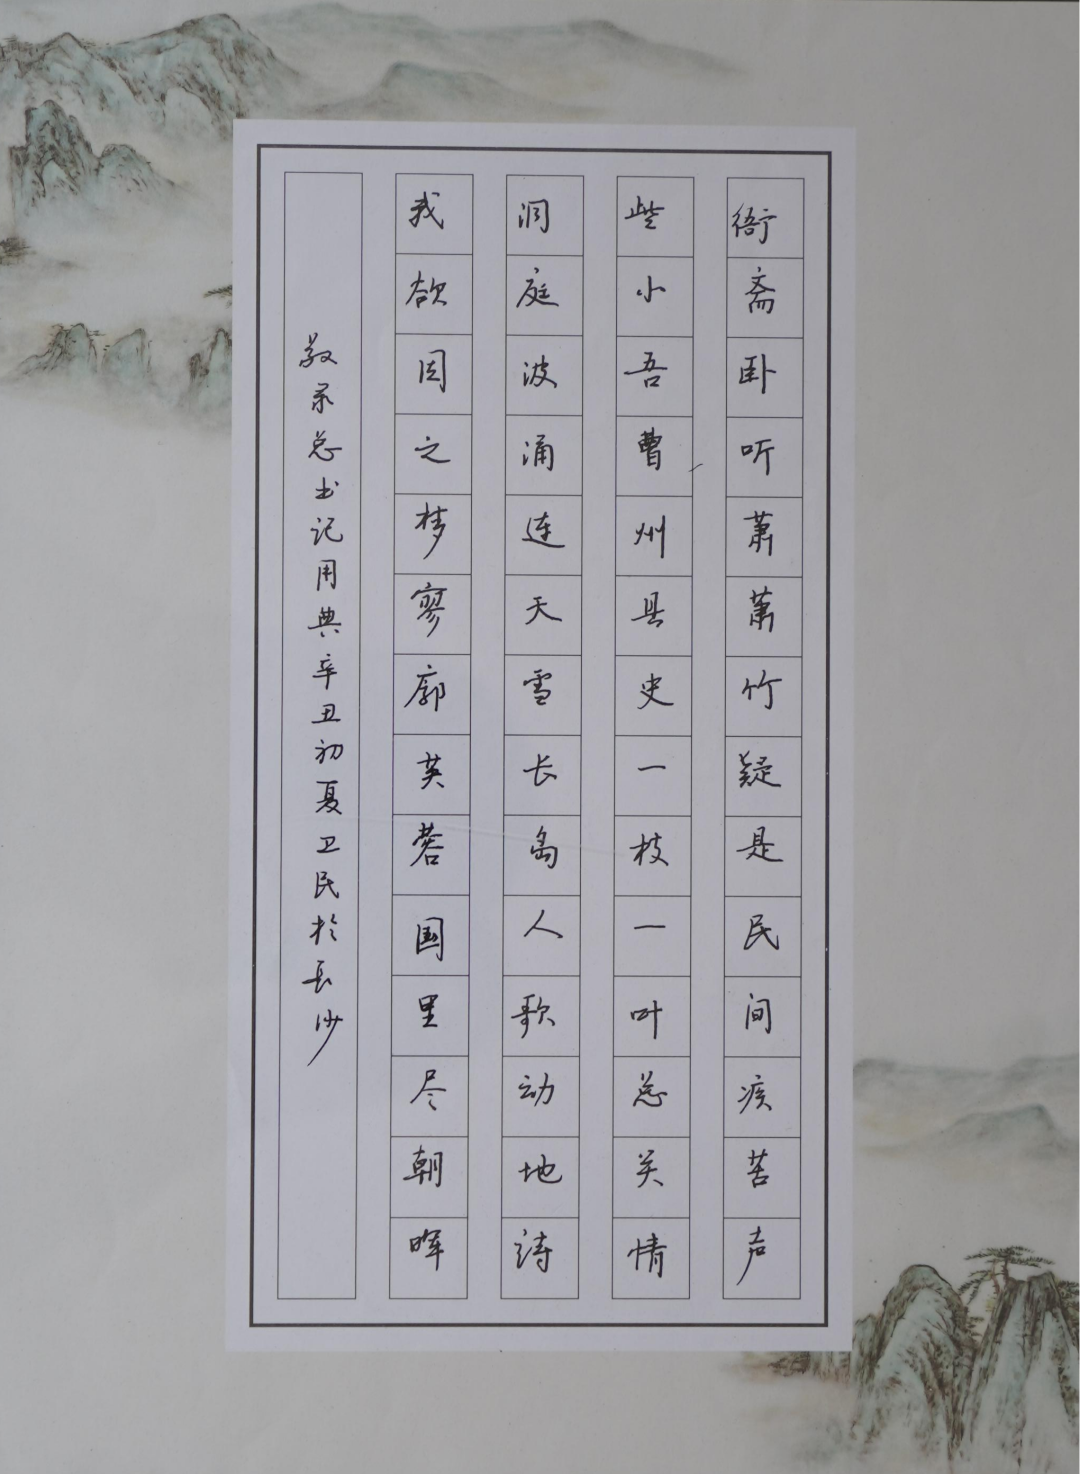 衙斋卧听萧萧竹疑是民间疾苦声
些小吾曹州县吏一枝一叶总关情
洞庭波涌连天雪长岛人歌动地诗
我欲因之梦寥廓芙蓉国里尽朝晖
敬录总书记用典辛丑初夏卫民於长沙